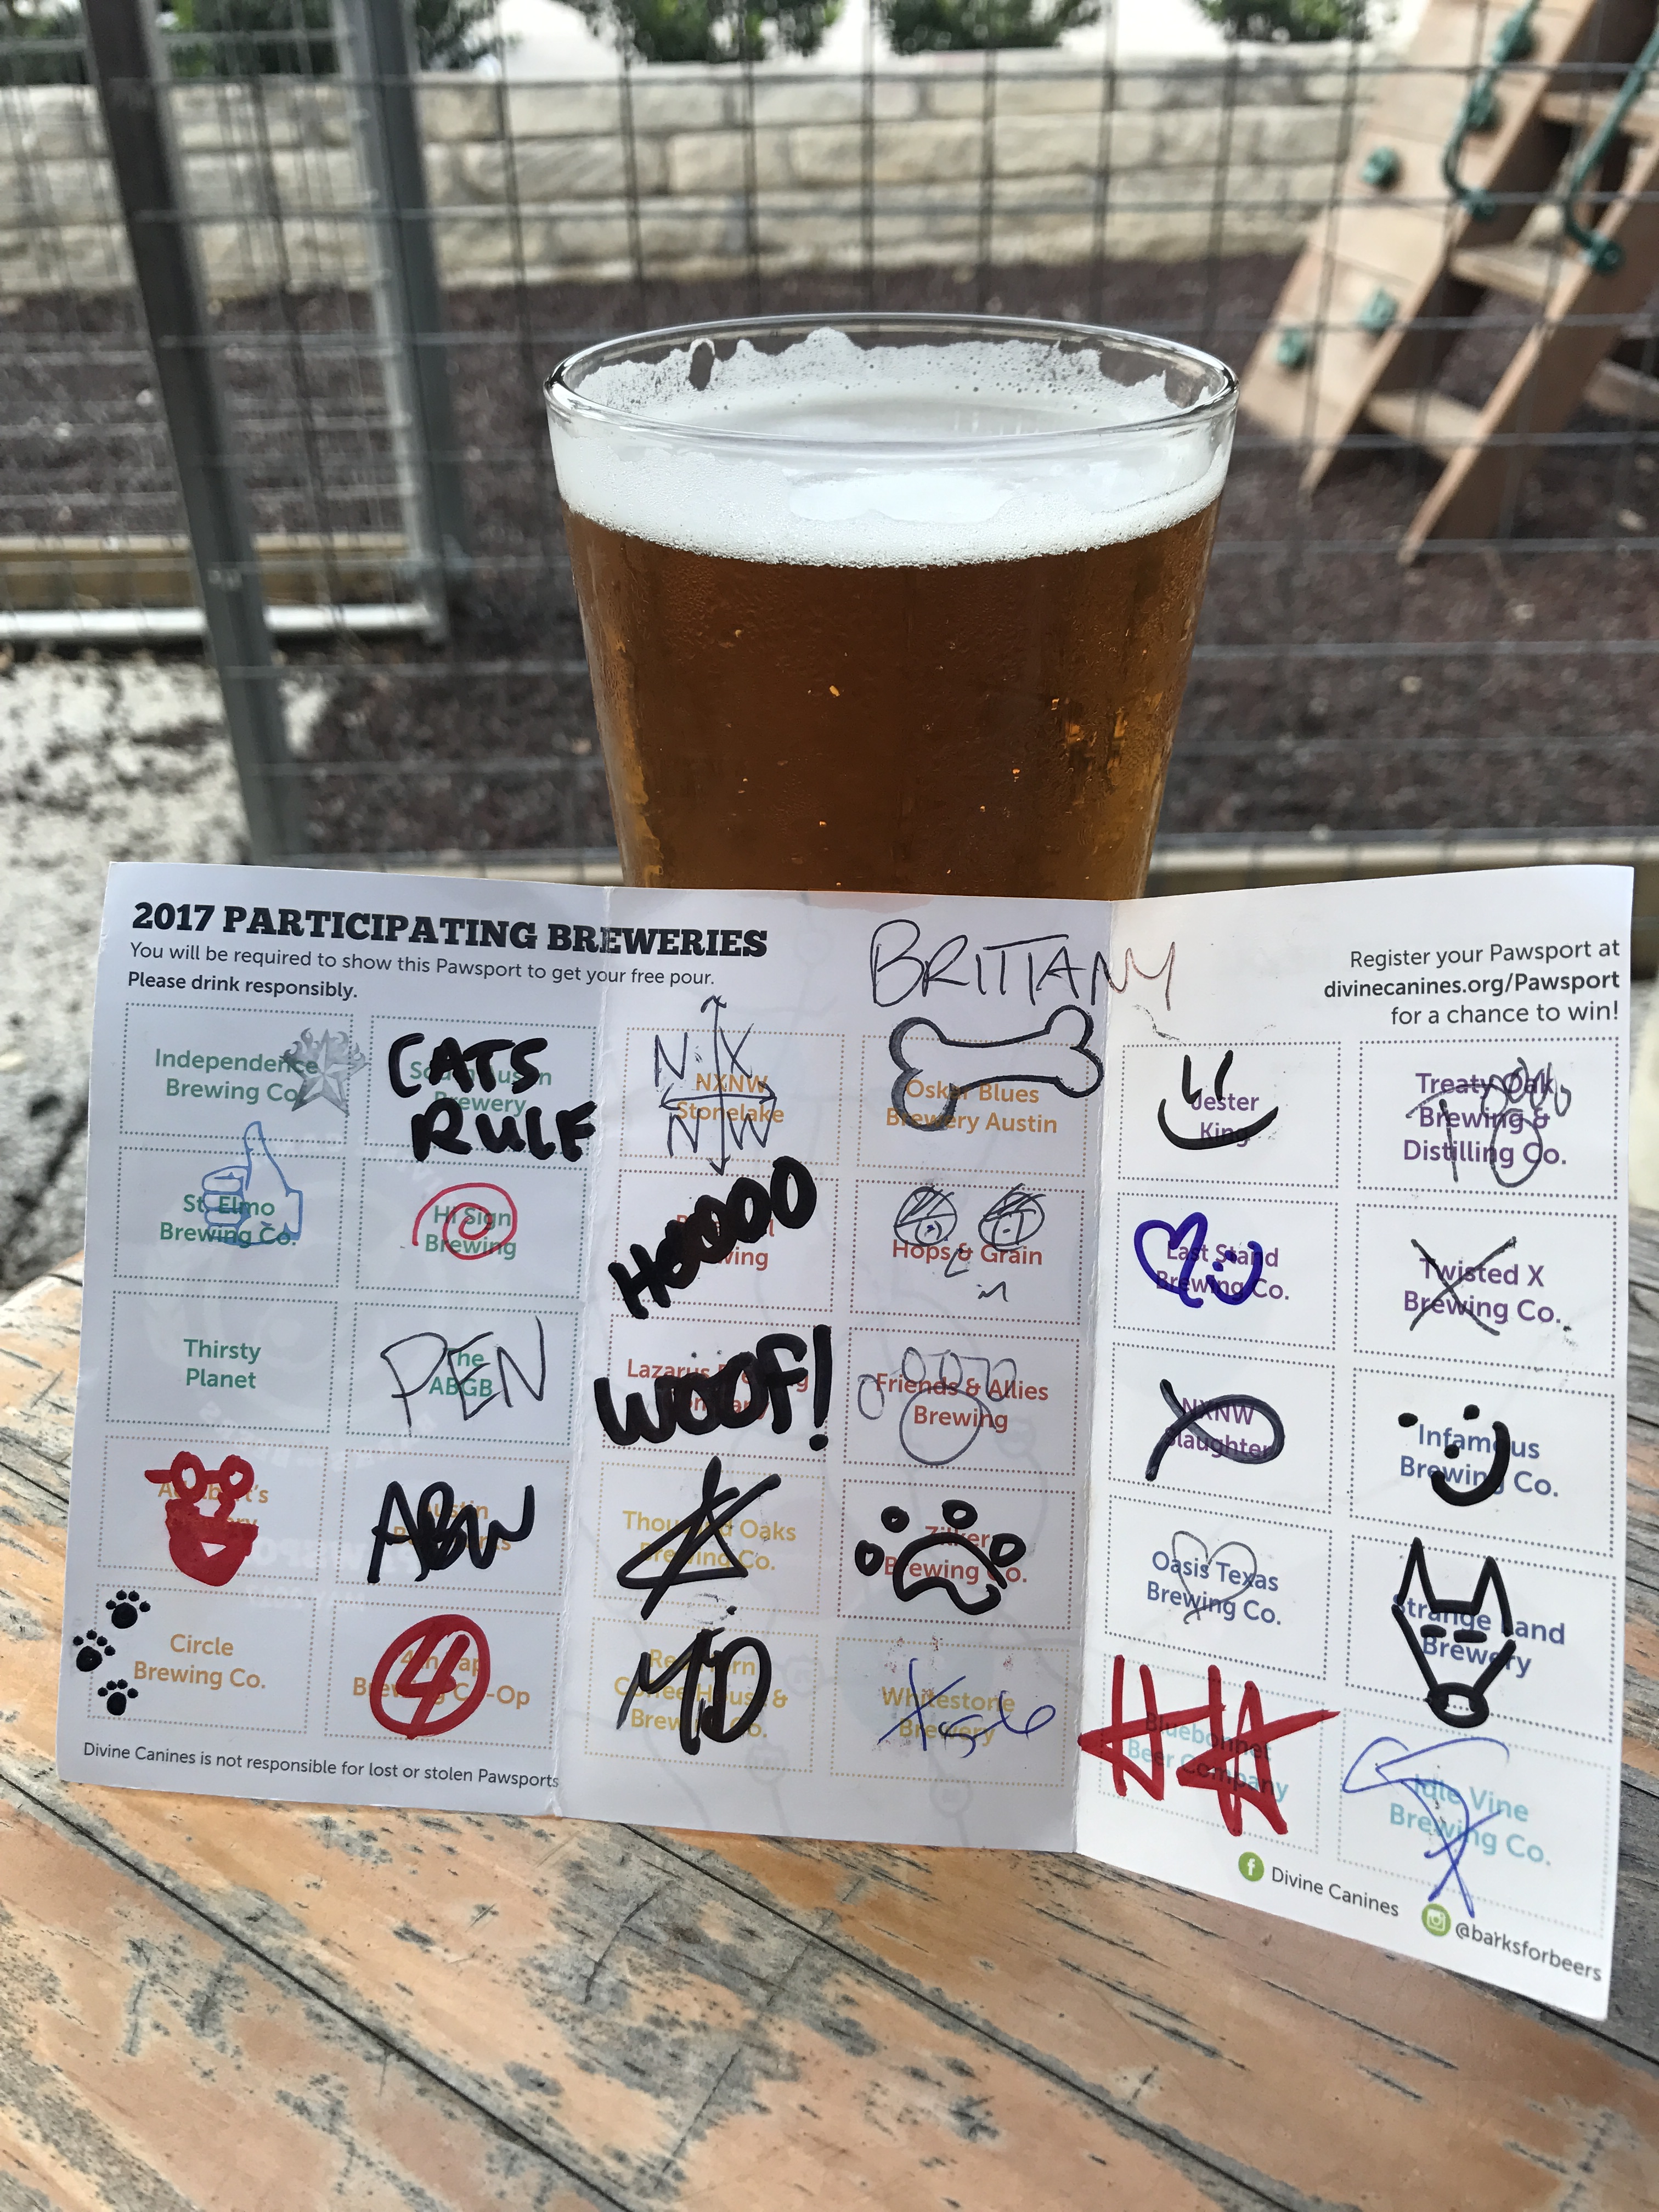 2017 PARTICIPATING BREWERIES
You will be required to show this Pawsport to get your free pour.
Please drink responsibly.
BRITTANY
Register your Pawsport at
divinecanines.org/Pawsport
for a chance to win!
Independence
Brewing Co.
CATS
RULE
Brewery
N X
NXNW
Stonelake
N W
Oskar Blues
Brewery Austin
Jester
King
Treaty Oak
Brewing &
Distilling Co.
St. Elmo
Brewing Co.
Hi Sign
Brewing
HOOOO
Hops & Grain
Last Stand
Brewing Co.
Twisted X
Brewing Co.
Thirsty
Planet
PEN
The
ABGB
Lazarus
WOOF!
Friends & Allies
Brewing
NXNW
Slaughter
Infamous
Brewing Co.
ABW
Thousand Oaks
Brewing Co.
Zilker
Brewing Co.
Oasis Texas
Brewing Co.
Strange Land
Brewery
Circle
Brewing Co.
4
4th Tap
Brewing Co-Op
Coffee House &
Brewing Co.
Whitestone
Brewery
Bluebonnet
Beer Company
Idle Vine
Brewing Co.
Divine Canines is not responsible for lost or stolen Pawsports
Divine Canines
@barksforbeers